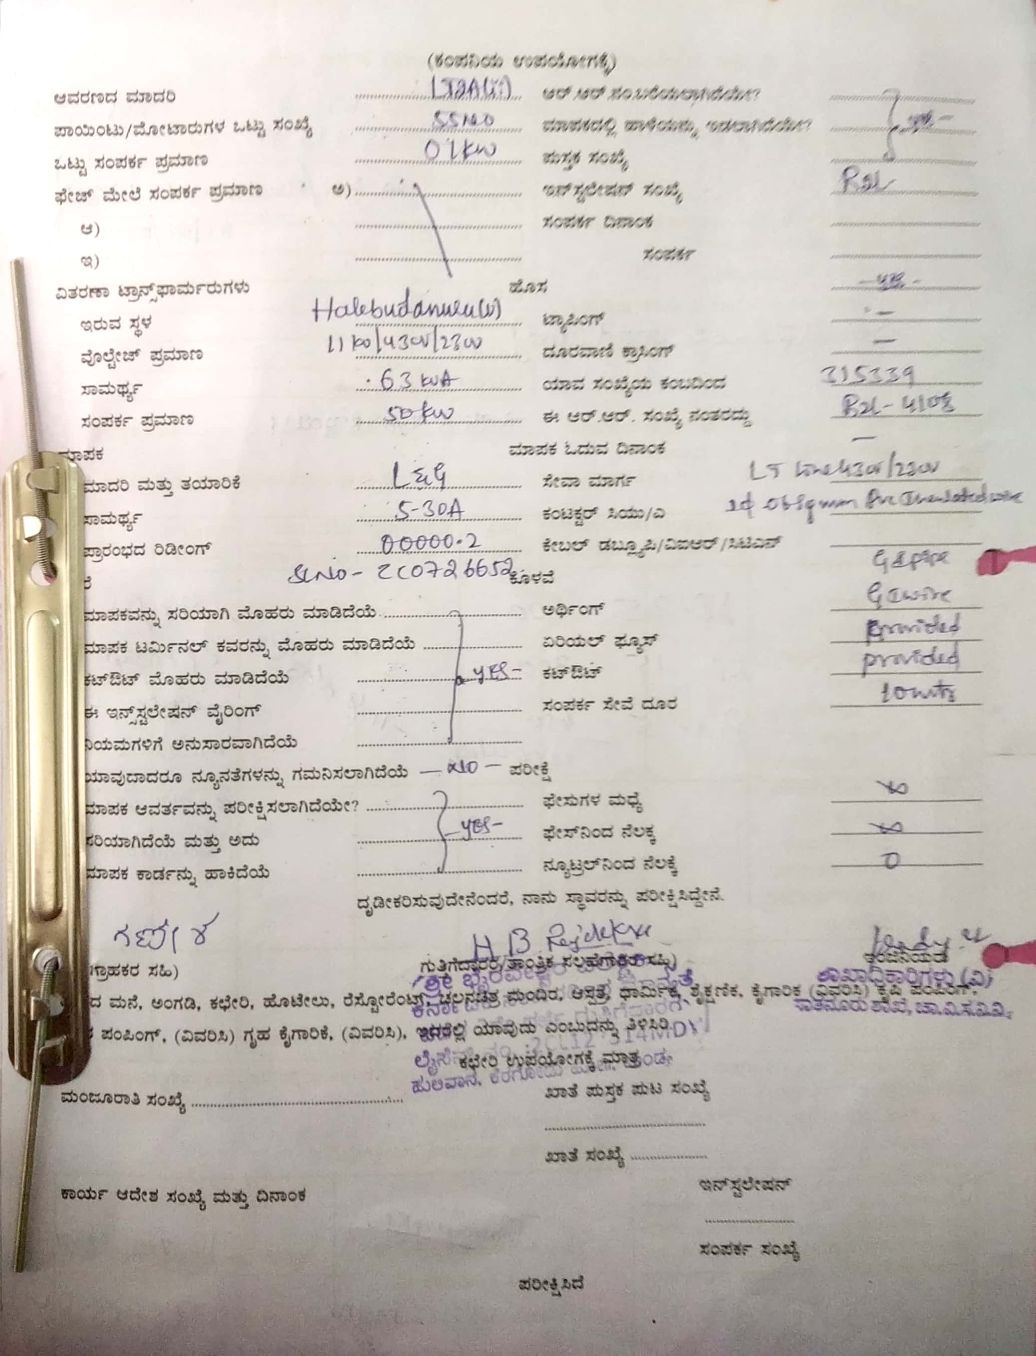 (ಕಂಪನಿಯ ಉಪಯೋಗಕ್ಕೆ)
ಆವರಣದ ಮಾದರಿ LT2A(ii) ಆರ್.ಆರ್.ಸಂ.ಬರೆಯಲಾಗಿದೆಯೇ?
ಪಾಯಿಂಟು/ಮೋಟಾರುಗಳ ಒಟ್ಟು ಸಂಖ್ಯೆ 5 ಮಾಪಕದಲ್ಲಿ ಹಾಳೆಯನ್ನು ಇಡಲಾಗಿದೆಯೇ? yes-
ಒಟ್ಟು ಸಂಪರ್ಕ ಪ್ರಮಾಣ 01kw ಪುಸ್ತಕ ಸಂಖ್ಯೆ
ಫೇಜ್ ಮೇಲೆ ಸಂಪರ್ಕ ಪ್ರಮಾಣ ಅ) ಇನ್‌ಸ್ಟಲೇಷನ್ ಸಂಖ್ಯೆ R2L
ಆ) ಸಂಪರ್ಕ ದಿನಾಂಕ
ಇ) ಸಂಪರ್ಕ
ವಿತರಣಾ ಟ್ರಾನ್ಸ್‌ಫಾರ್ಮರುಗಳು ಹೊಸ -yes-
ಇರುವ ಸ್ಥಳ Halebudanuru(v) ಟ್ಯಾಪಿಂಗ್ -
ವೊಲ್ಟೇಜ್ ಪ್ರಮಾಣ 11kv/430v/230v ದೂರವಾಣಿ ಕ್ರಾಸಿಂಗ್ -
ಸಾಮರ್ಥ್ಯ 63 kvA ಯಾವ ಸಂಖ್ಯೆಯ ಕಂಬದಿಂದ 315339
ಸಂಪರ್ಕ ಪ್ರಮಾಣ 50kw ಈ ಆರ್.ಆರ್. ಸಂಖ್ಯೆ ನಂತರದ್ದು R2L-4108
ಮಾಪಕ ಮಾಪಕ ಓದುವ ದಿನಾಂಕ -
ಮಾದರಿ ಮತ್ತು ತಯಾರಿಕೆ L&G ಸೇವಾ ಮಾರ್ಗ LT line 430v/230v
ಸಾಮರ್ಥ್ಯ 5-30A ಕಂಟಕ್ಟರ್ ಸಿಯು/ಎ
ಪ್ರಾರಂಭದ ರಿಡೀಂಗ್ 00000.2 ಕೇಬಲ್ ಡಬ್ಲ್ಯೂಪಿ/ವಿಐಆರ್/ಸಿಟಿಎಸ್
SLNo- 2C0726652 ಕೊಳವೆ GI pipe
ಮಾಪಕವನ್ನು ಸರಿಯಾಗಿ ಮೊಹರು ಮಾಡಿದೆಯೆ ಅರ್ಥಿಂಗ್ GI wire
ಮಾಪಕ ಟರ್ಮಿನಲ್ ಕವರನ್ನು ಮೊಹರು ಮಾಡಿದೆಯೆ ಏರಿಯಲ್ ಫ್ಯೂಸ್ provided
ಕಟ್‌ಔಟ್ ಮೊಹರು ಮಾಡಿದೆಯೆ -yes- ಕಟ್‌ಔಟ್ provided
ಈ ಇನ್ಸ್‌ಸ್ಟಲೇಷನ್ ವೈರಿಂಗ್ ಸಂಪರ್ಕ ಸೇವೆ ದೂರ 10mts
ನಿಯಮಗಳಿಗೆ ಅನುಸಾರವಾಗಿದೆಯೆ
ಯಾವುದಾದರೂ ನ್ಯೂನತೆಗಳನ್ನು ಗಮನಿಸಲಾಗಿದೆಯೆ -NO- ಪರೀಕ್ಷೆ
ಮಾಪಕ ಆವರ್ತವನ್ನು ಪರೀಕ್ಷಿಸಲಾಗಿದೆಯೇ? ಫೇಸುಗಳ ಮಧ್ಯೆ ∞
ಸರಿಯಾಗಿದೆಯೆ ಮತ್ತು ಅದು -yes- ಫೇಸ್‌ನಿಂದ ನೆಲಕ್ಕೆ ∞
ಮಾಪಕ ಕಾರ್ಡನ್ನು ಹಾಕಿದೆಯೆ ನ್ಯೂಟ್ರಲ್‌ನಿಂದ ನೆಲಕ್ಕೆ 0
ದೃಢೀಕರಿಸುವುದೇನೆಂದರೆ, ನಾನು ಸ್ಥಾವರನ್ನು ಪರೀಕ್ಷಿಸಿದ್ದೇನೆ.
ಗಣೇಶ
ಗ್ರಾಹಕರ ಸಹಿ) ಗುತ್ತಿಗೆದಾರರ/ತಾಂತ್ರಿಕ ಸಲಹೆಗಾರರ ಸಹಿ) ಇಂಜಿನಿಯರ
ಶಾಖಾಧಿಕಾರಿಗಳು (ವಿ)
ದ ಮನೆ, ಅಂಗಡಿ, ಕಛೇರಿ, ಹೊಟೇಲು, ರೆಸ್ಟೋರೆಂಟ್, ಚಲನಚಿತ್ರ ಮಂದಿರ, ಆಸ್ಪತ್ರೆ, ಧಾರ್ಮಿಕ, ಶೈಕ್ಷಣಿಕ, ಕೈಗಾರಿಕ (ವಿವರಿಸಿ) ಕೃಷಿ ಪಂಪಿಂಗ್,
ಪಂಪಿಂಗ್, (ವಿವರಿಸಿ) ಗೃಹ ಕೈಗಾರಿಕೆ, (ವಿವರಿಸಿ), ಇದರಲ್ಲಿ ಯಾವುದು ಎಂಬುದನ್ನು ತಿಳಿಸಿರಿ.
ಕಛೇರಿ ಉಪಯೋಗಕ್ಕೆ ಮಾತ್ರ
ಮಂಜೂರಾತಿ ಸಂಖ್ಯೆ ಖಾತೆ ಪುಸ್ತಕ ಪುಟ ಸಂಖ್ಯೆ
ಖಾತೆ ಸಂಖ್ಯೆ
ಕಾರ್ಯ ಆದೇಶ ಸಂಖ್ಯೆ ಮತ್ತು ದಿನಾಂಕ ಇನ್‌ಸ್ಟಲೇಷನ್
ಸಂಪರ್ಕ ಸಂಖ್ಯೆ
ಪರೀಕ್ಷಿಸಿದೆ